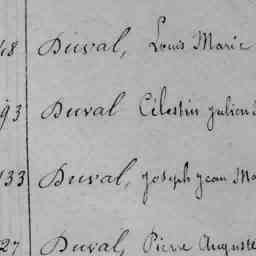 48 Duval, Louis Marie
93 Duval Célestin julien
133 Duval, joseph jean Ma
27 Duval, Pierre Auguste